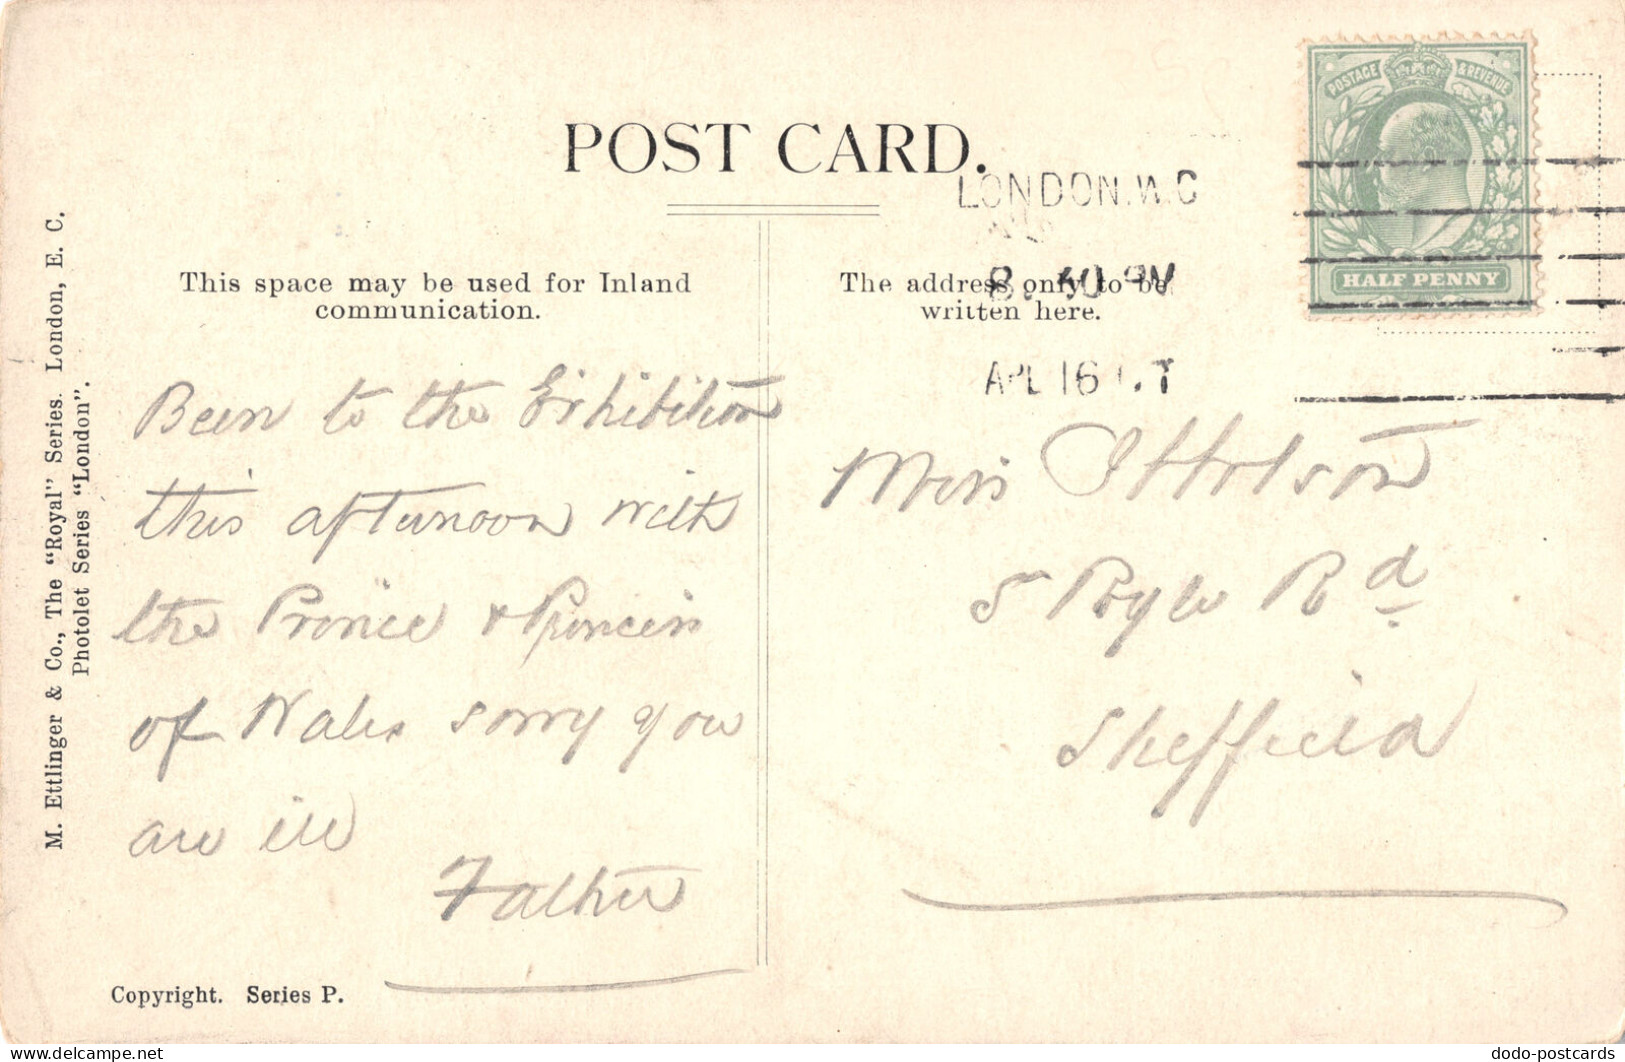 POST CARD.
POSTAGE & REVENUE
HALF PENNY
LONDON. W.C
8. 30 PM
APL 16
This space may be used for Inland
communication.
The address only to be
written here.
M. Ettlinger & Co., The "Royal" Series. London, E. C.
Photolet Series "London".
Been to the Exhibition
this afternoon with
the Prince & Princess
of Wales sorry you
are ill
Father
Miss
5 Ryle Rd
Sheffield
Copyright. Series P.
delcampe.net
dodo-postcards